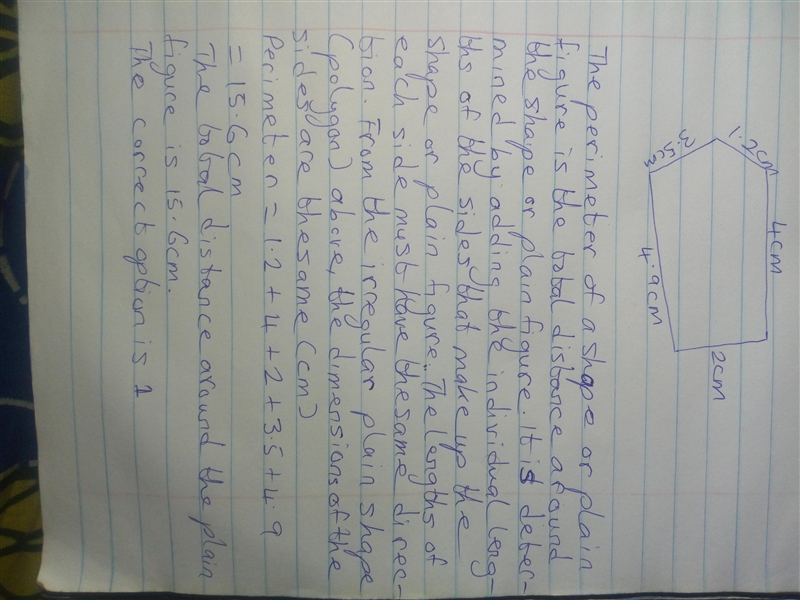 1.2cm
4cm
3.5cm
4.9cm
2cm
The perimeter of a shape or plain
figure is the total distance around
the shape or plain figure. It is deter-
mined by adding the individual leng-
ths of the sides that make up the
shape or plain figure. The lengths of
each side must have thesame direc-
tion. From the irregular plain shape
(polygon) above, the dimensions of the
sides are thesame (cm)
Perimeter = 1.2 + 4 + 2 + 3.5 + 4.9
= 15.6cm
The total distance around the plain
figure is 15.6cm.
The correct option is 1